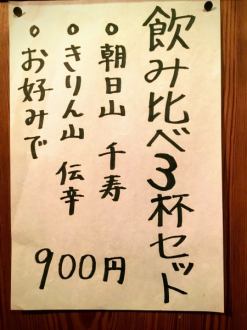 飲み比べ3杯セット
○朝日山 千寿
○きりん山 伝辛
○お好みで
900円